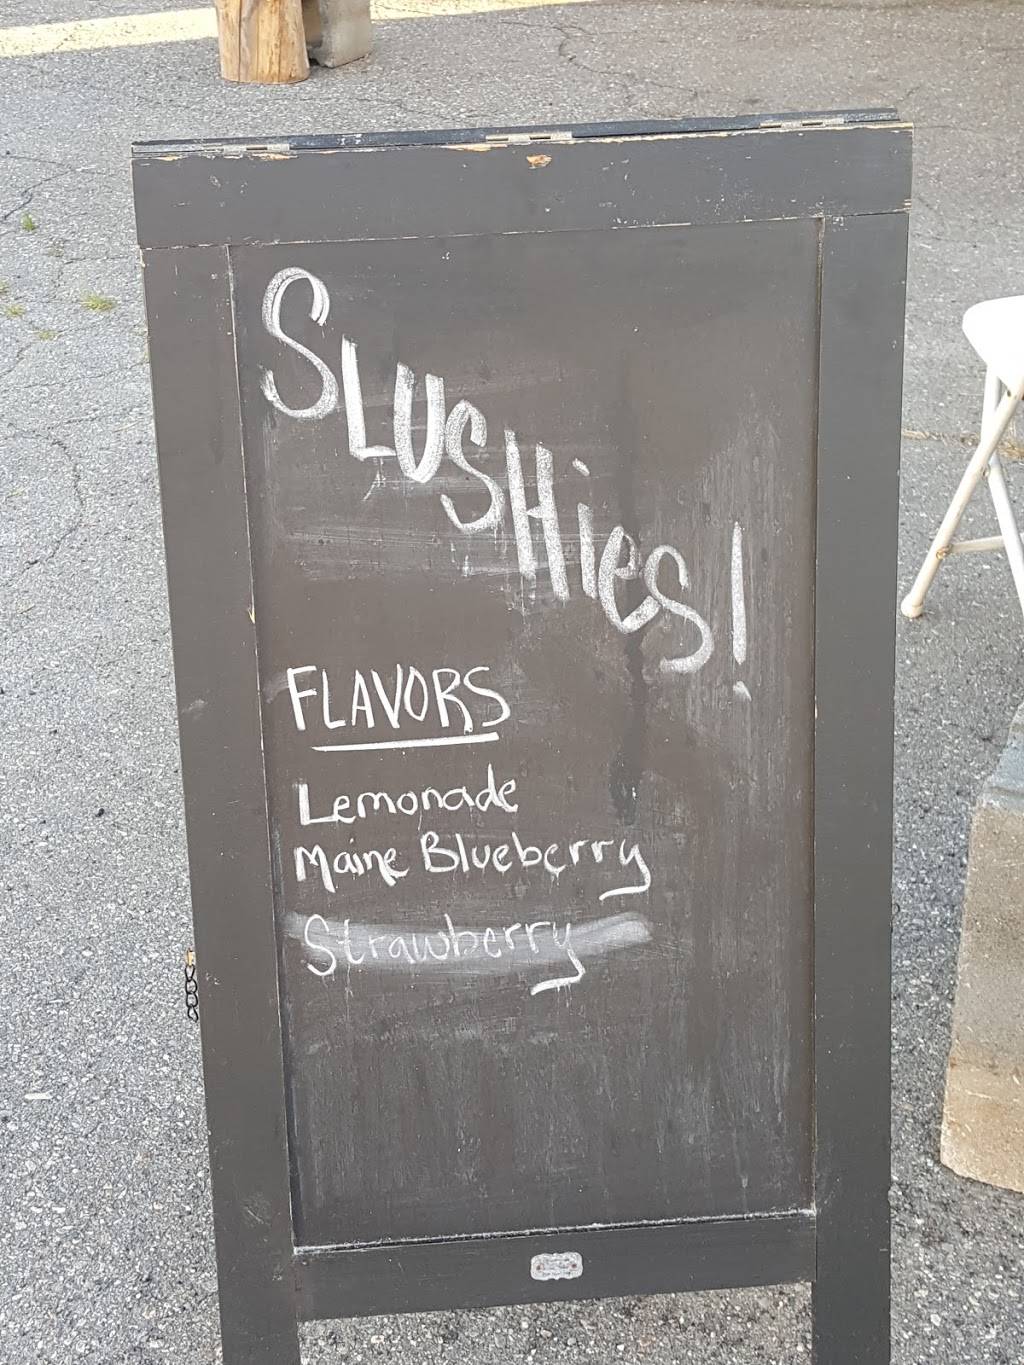 SLUSHieS!
FLAVORS
Lemonade
Maine Blueberry
Strawberry